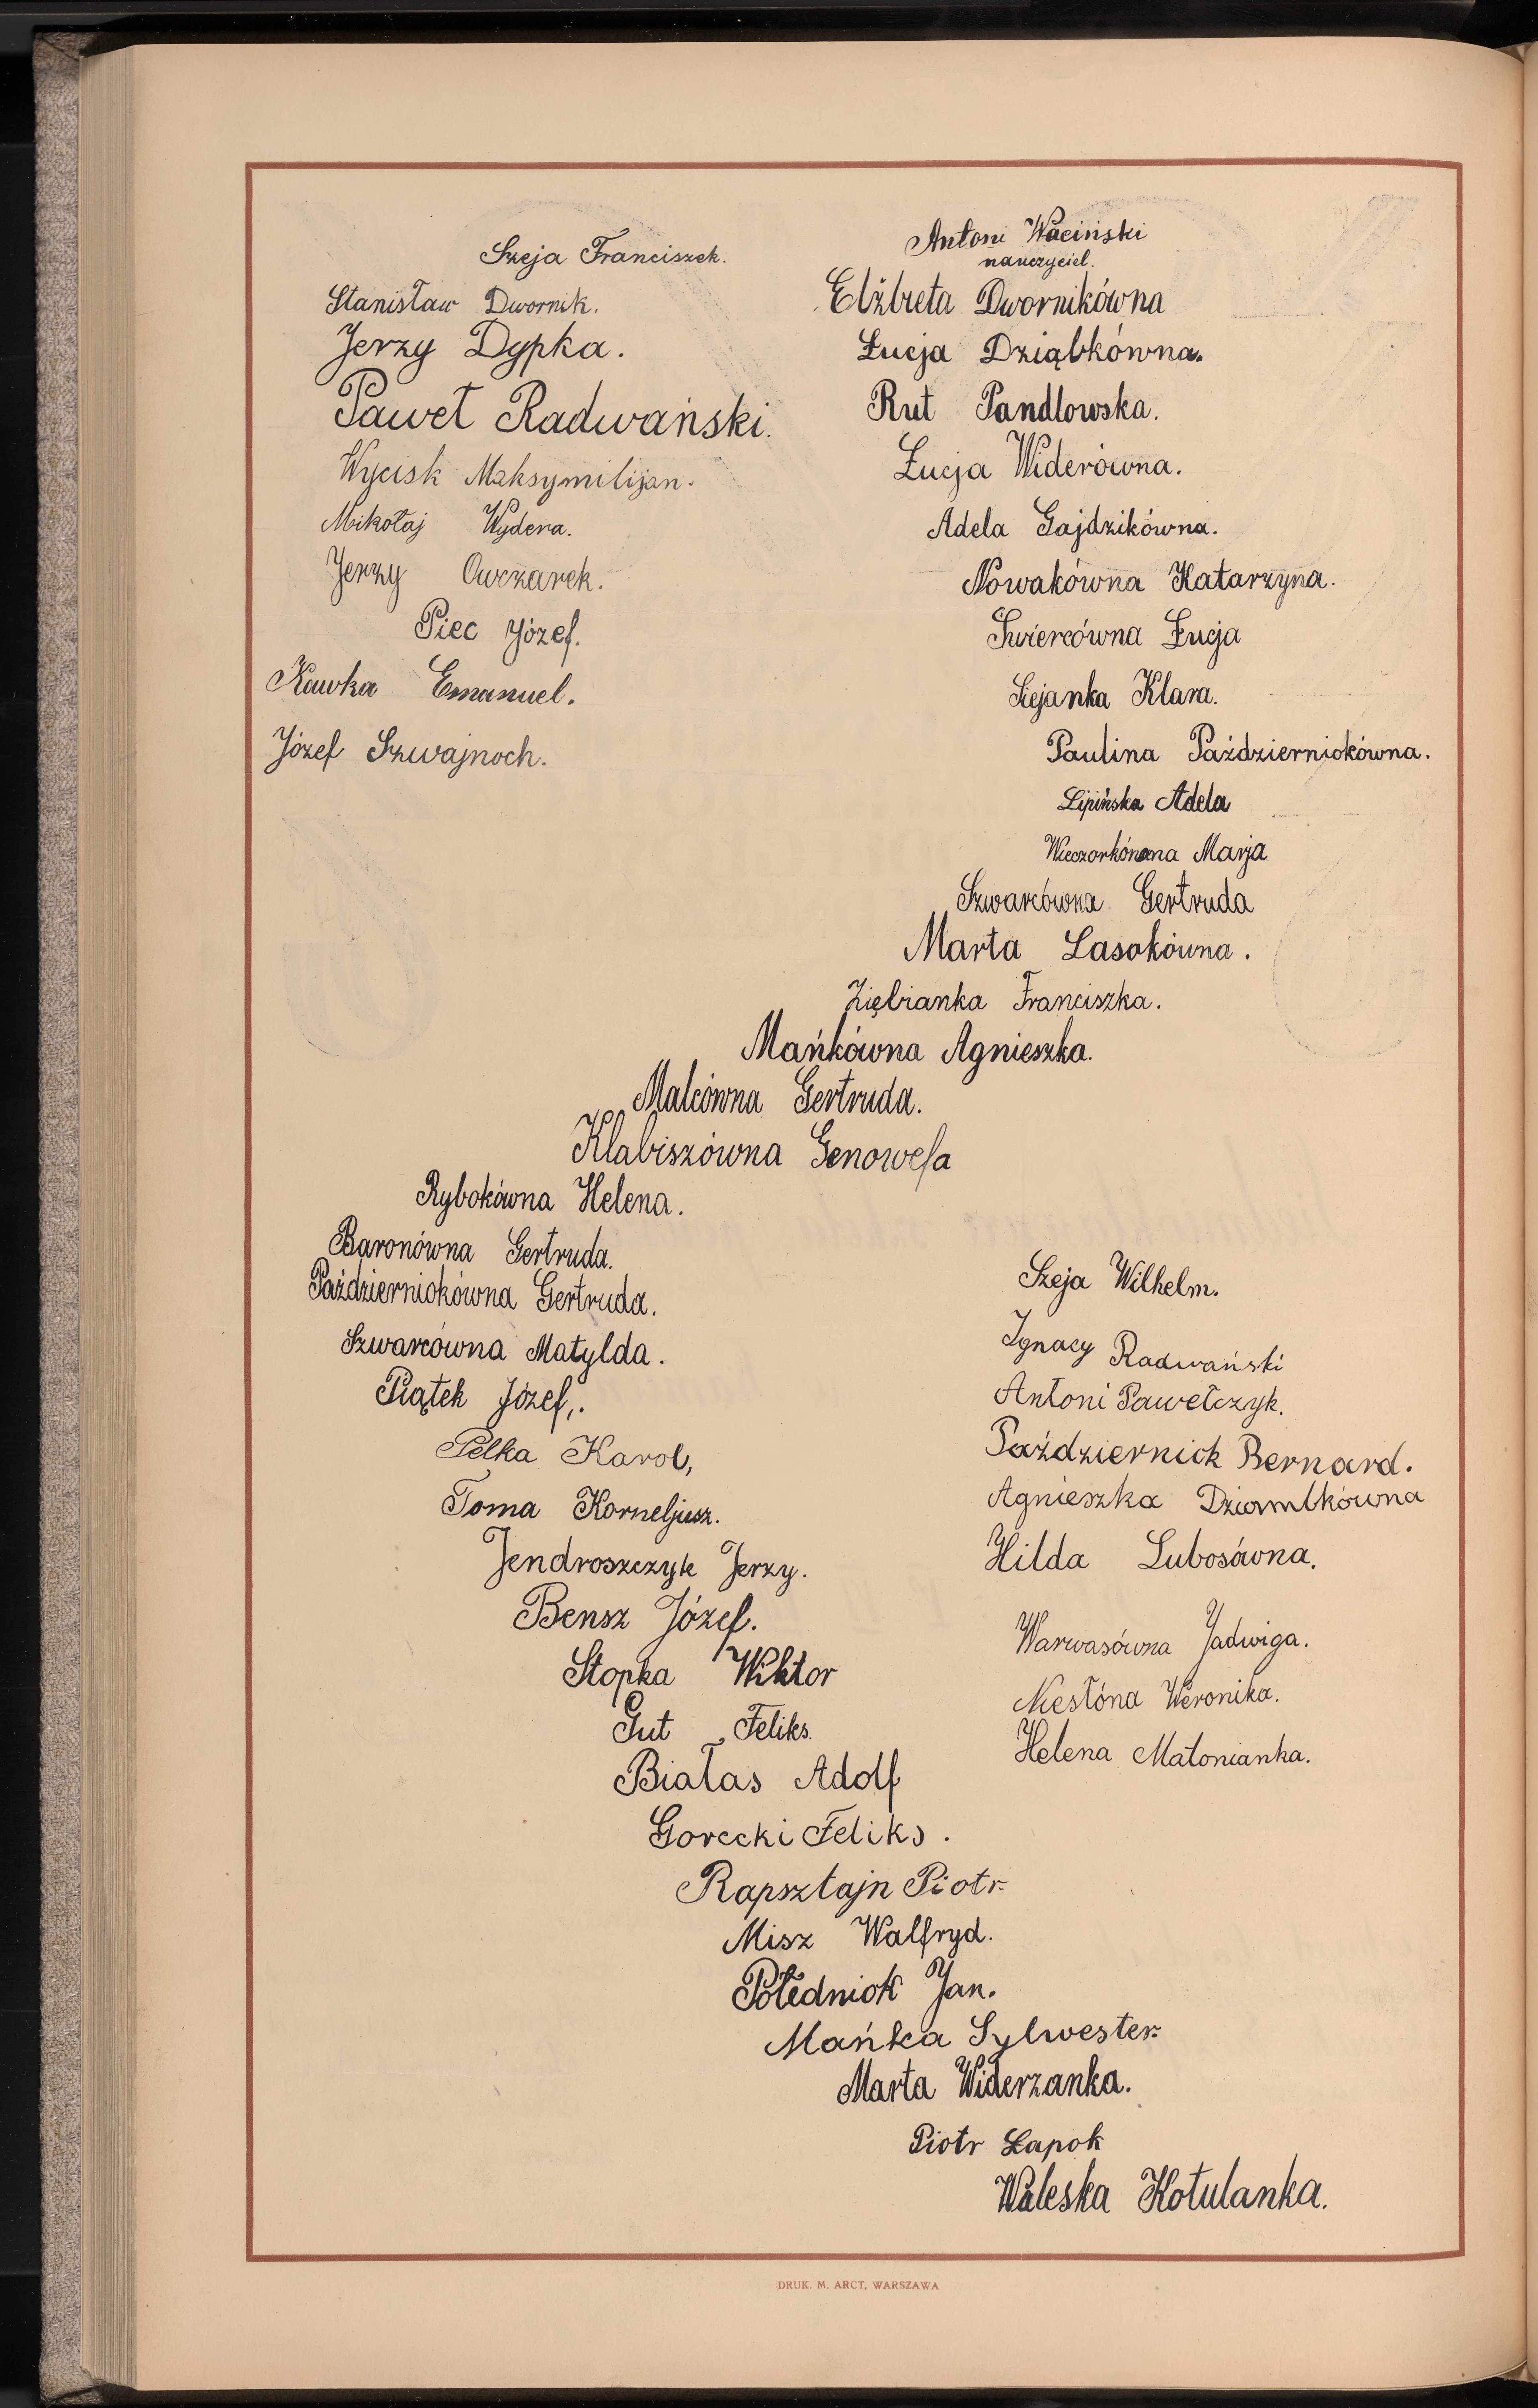 Szeja Franciszek.
Stanisław Dwornik.
Jerzy Dypka.
Paweł Radwański.
Wycisk Maksymilijan.
Mikołaj Wydera.
Jerzy Owczarek.
Piec Józef.
Kawka Emanuel.
Józef Szwajnoch.
Antoni Waciński
nauczyciel.
Elżbieta Dwornikówna
Łucja Dziąbkówna.
Rut Pandlowska.
Łucja Widerówna.
Adela Gajdzikówna.
Nowakówna Katarzyna.
Świercówna Łucja
Szejanka Klara.
Paulina Październiokówna.
Lipińska Adela
Wieczorkówna Marja
Szwarcówna Gertruda
Marta Lasokówna.
Ziębianka Franciszka.
Mańkówna Agnieszka.
Malcówna Gertruda.
Klabiszówna Genowefa
Rybokówna Helena.
Baronówna Gertruda.
Październiokówna Gertruda.
Szwarcówna Matylda.
Piątek Józef,.
Pelka Karol,
Toma Korneljusz.
Jendroszczyk Jerzy.
Bensz Józef.
Stopka Wiktor
Gut Feliks.
Białas Adolf
Gorecki Feliks.
Rapsztajn Piotr.
Misz Walfryd.
Połedniok Jan.
Mańka Sylwester.
Marta Widerzanka.
Piotr Łapok
Waleska Kotulanka.
Szeja Wilhelm.
Ignacy Radwański
Antoni Pawełczyk.
Październiok Bernard.
Agnieszka Dziombkówna
Hilda Lubosówna.
Warwasówna Jadwiga.
Niesłóna Weronika.
Helena Matonianka.
DRUK. M. ARCT, WARSZAWA